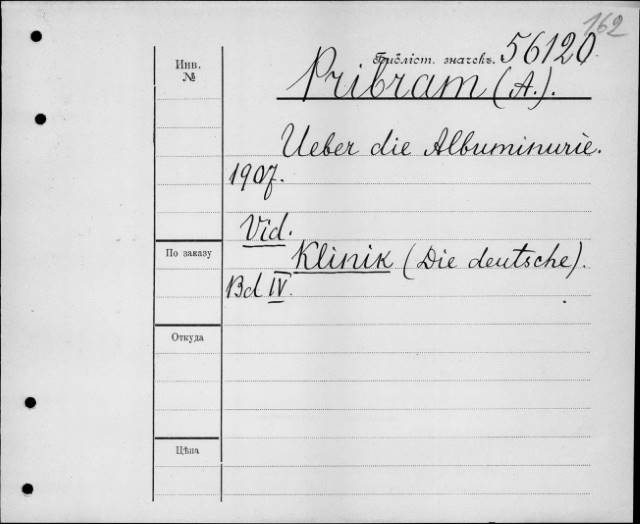 162
Библіот. значекъ. 56120
Инв.
№
Pribram (A.).
Ueber die Albuminurie.
1907.
Vid.
По заказу
Klinik (Die deutsche).
Bd IV.
Откуда
Цѣна